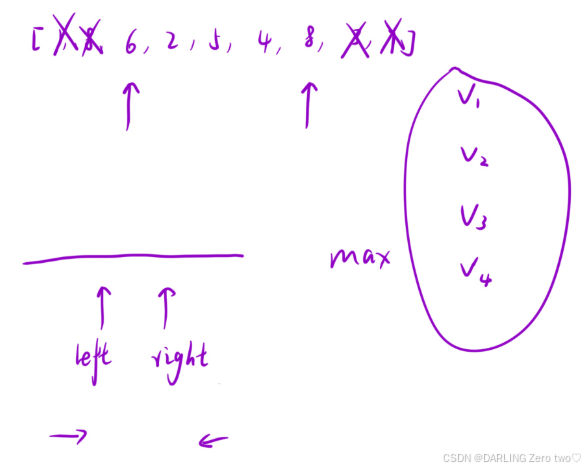 [ 1, 8, 6, 2, 5, 4, 8, 3, 7]
V1
V2
V3
max
V4
left right
CSDN @DARLING Zero two♡